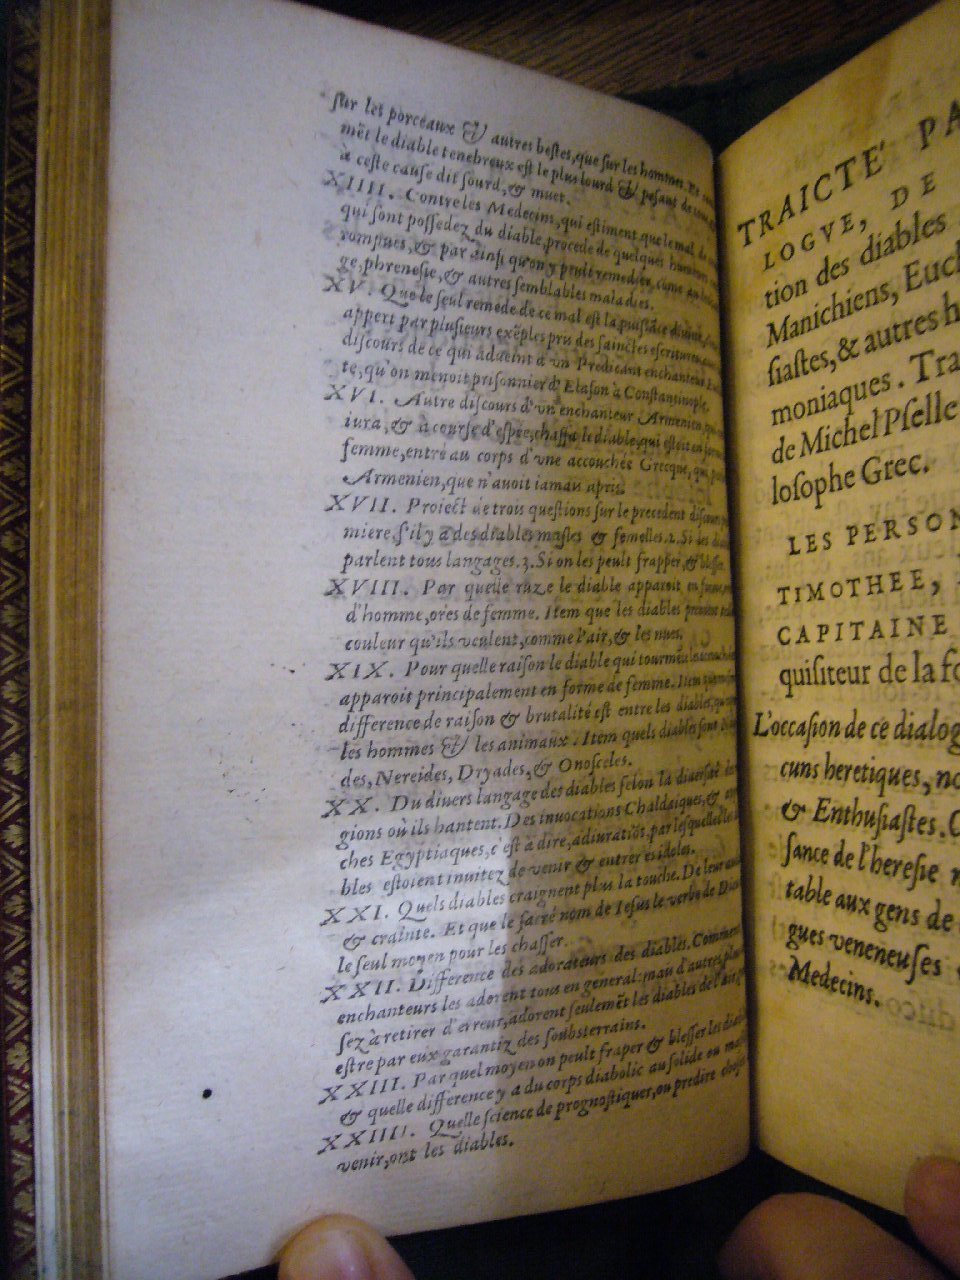 sur les porceaux & autres bestes, que sur les hommes. Et com̄
mēt le diable tenebreux est le plus lourd & pesant de tous,
à ceste cause dit sourd, & muet.
XIIII. Contre les Medecins, qui estiment que le mal de
qui sont possedez du diable, procede de quelques humeurs
rompues, & par ainsi qu'on y peult remedier, come en
ge, phrenesie, & autres semblables maladies.
XV. Que le seul remede de ce mal est la puissāce divine,
appert par plusieurs exēples pris des sainctes escritures,
discours de ce qui advint à un Predicant enchanteur
te, qu'on menoit prisonnier d'Elason à Constantinople.
XVI. Autre discours d'vn enchanteur Armenien, qui
iura, & à course d'espee, chassa le diable, qui estoit en forme
femme, entré au corps d'vne accouchée Grecque, qui
Armenien, que n'auoit iamais apris.
XVII. Proiect de trois questions sur le precedent discours
miere, s'il y a des diables masles & femelles. 2. Si
parlent tous langages. 3. Si on les peult frapper, & blesser.
XVIII. Par quelle ruze le diable apparoit en forme,
d'homme, ores de femme. Item que les diables prennent
couleur qu'ils veulent, comme l'air, & les nues.
XIX. Pour quelle raison le diable qui tourmēte les
apparoit principalement en forme de femme. Item
difference de raison & brutalité est entre les diables,
les hommes & les animaux. Item quels diables sont
des, Nereides, Dryades, & Onosceles.
XX. Du diuers langage des diables selon la diuersité
gions où ils hantent. Des inuocations Chaldaiques, &
ches Egyptiaques, c'est à dire, adiuratiōs, par lesquelles les
bles estoient inuitez de venir & entrer es idoles.
XXI. Quels diables craignent plus la touche. De leur
& crainte. Et que le sacré nom de Iesus le verbe de Dieu
le seul moyen pour les chasser.
XXII. Difference des adorateurs des diables. Comment
enchanteurs les adorent tous en general: mais d'autres,
sez à retirer d'erreur, adorent seulemēt les diables de l'air,
estre par eux garantiz des soubsterrains.
XXIII. Par quel moyen on peult fraper & blesser les
& quelle difference y a du corps diabolic au solide ou
XXIIII. Quelle science de prognostiquer, ou predire choses
venir, ont les diables.
TRAICTE' PA
LOGVE, DE
tion des diables
Manichiens, Euch
siastes, & autres h
moniaques. Tra
de Michel Pselle
losophe Grec.
LES PERSON
TIMOTHEE,
CAPITAINE
quisiteur de la fo
L'occasion de ce dialog
cuns heretiques, no
& Enthusiastes. C
sance de l'heresie
table aux gens de
gues veneneuses
Medecins.